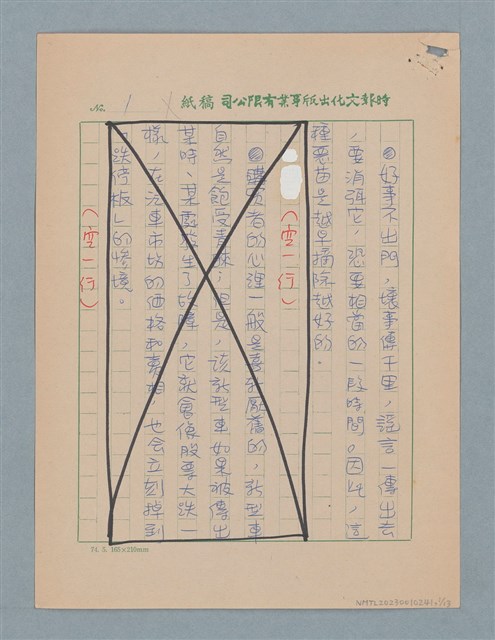 時報文化出版事業有限公司 稿紙
No. 1
◎好事不出門，壞事傳千里，謠言一傳出去
，要消弭它，恐要相當的一段時間。因此，這
種惡苗是越早摘除越好的。
（空一行）
◎購買者的心理一般是喜新厭舊的，新型車
自然是飽受青睞；但是，該新型車如果被傳出
某時、某處發生了故障，它就會像股票大跌一
樣，在汽車市場的價格和賣相，也會立刻掉到
跌停板」的慘境。
（空一行）
74. 5. 185×210mm
NMTL20230010241